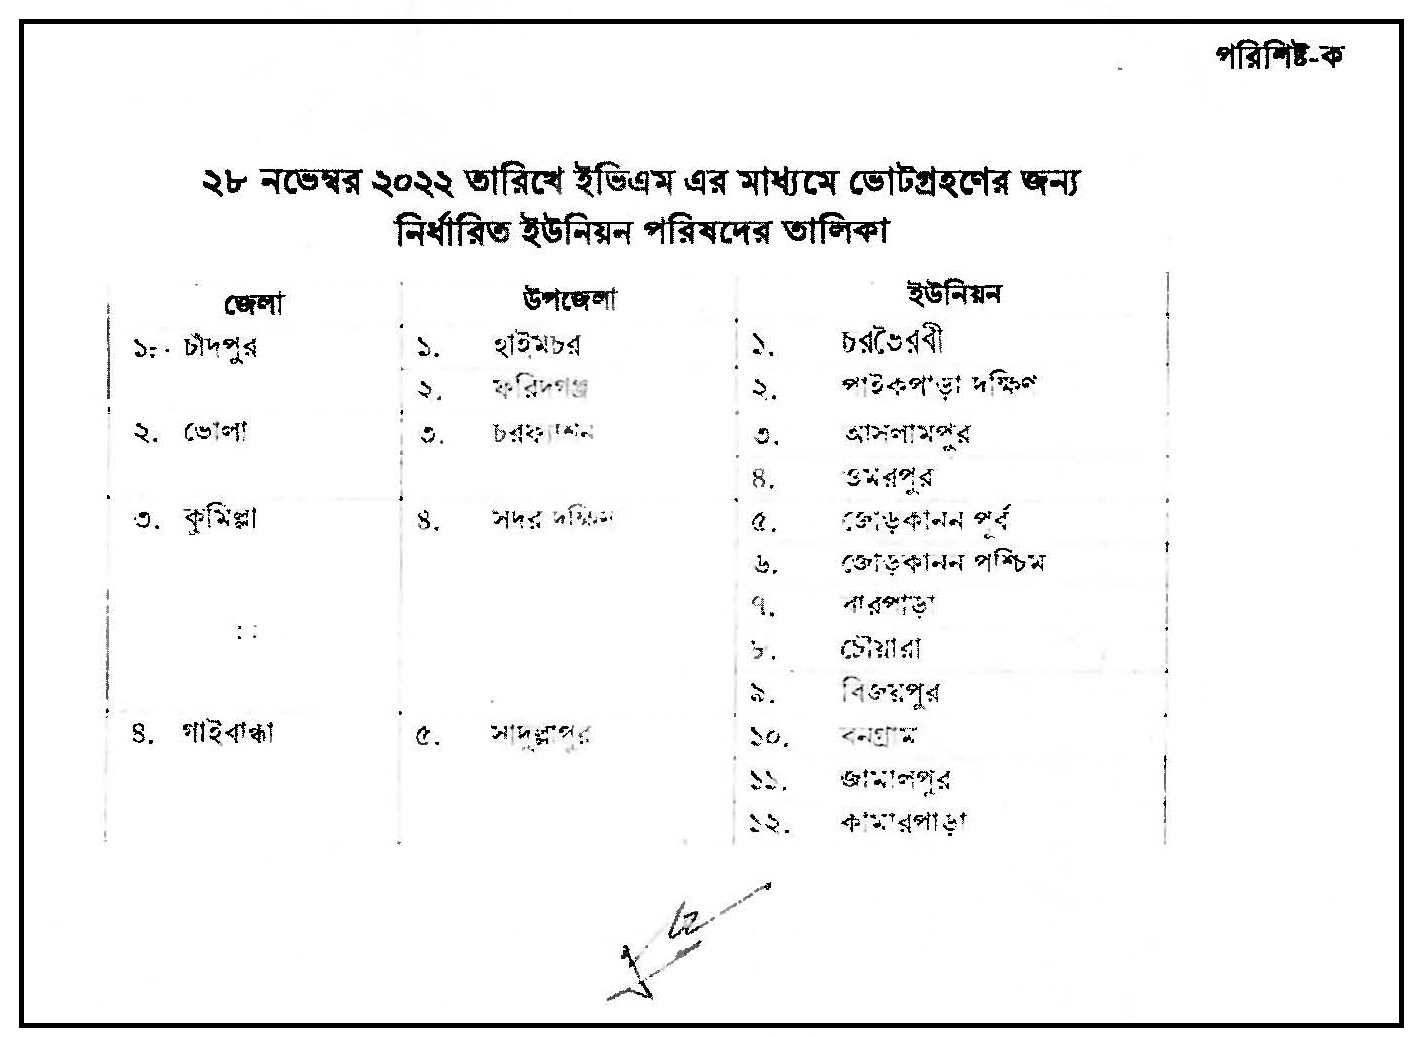 পরিশিষ্ট-ক
২৮ নভেম্বর ২০২২ তারিখে ইভিএম এর মাধ্যমে ভোটগ্রহণের জন্য
নির্ধারিত ইউনিয়ন পরিষদের তালিকা
জেলা উপজেলা ইউনিয়ন
১. চাঁদপুর ১. হাইমচর ১. চরভৈরবী
২. ফরিদগঞ্জ ২. পাইকপাড়া দক্ষিণ
২. ভোলা ৩. চরফ্যাশন ৩. আসলামপুর
৪. ওমরপুর
৩. কুমিল্লা ৪. সদর দক্ষিণ ৫. জোড়কানন পূর্ব
৬. জোড়কানন পশ্চিম
৭. বারপাড়া
৮. চৌয়ারা
৯. বিজয়পুর
৪. গাইবান্ধা ৫. সাদুল্লাপুর ১০. বনগ্রাম
১১. জামালপুর
১২. কামারপাড়া